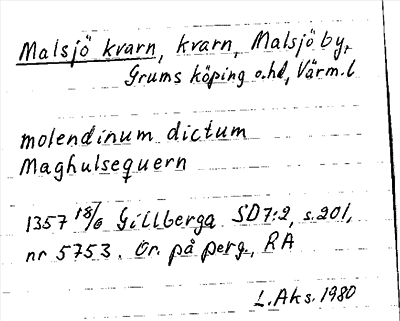 Malsjö kvarn, kvarn, Malsjö by,
Grums köping o. hd, Värm. l
molendinum dictum
Maghulsequern
1357 18/6 Gillberga SD7:2, s. 201,
nr 5753. Or. på perg., RA
L. Aks. 1980